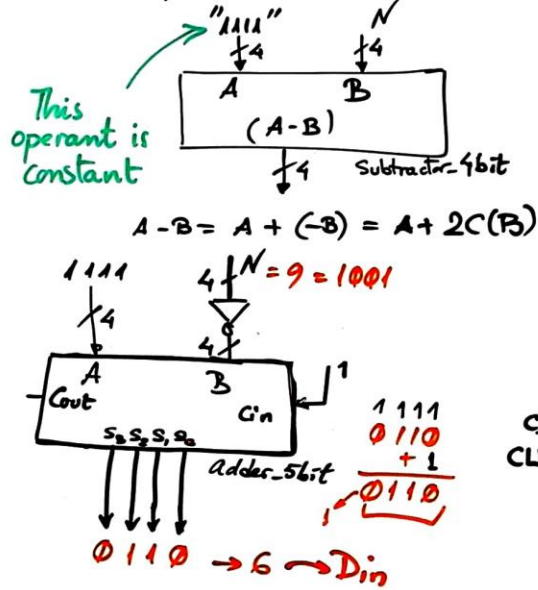 "1111" N
4 4
This
operant is
constant
A B
(A-B)
4 Subtractor_4bit
A-B = A + (-B) = A + 2C(B)
1111 4 N = 9 = 1001
4 4
A B
Cout Cin 1
S3 S2 S1 S0
Adder_5bit
0110 → 6 → Din
1111
0110
+ 1
1 0110
C
CL